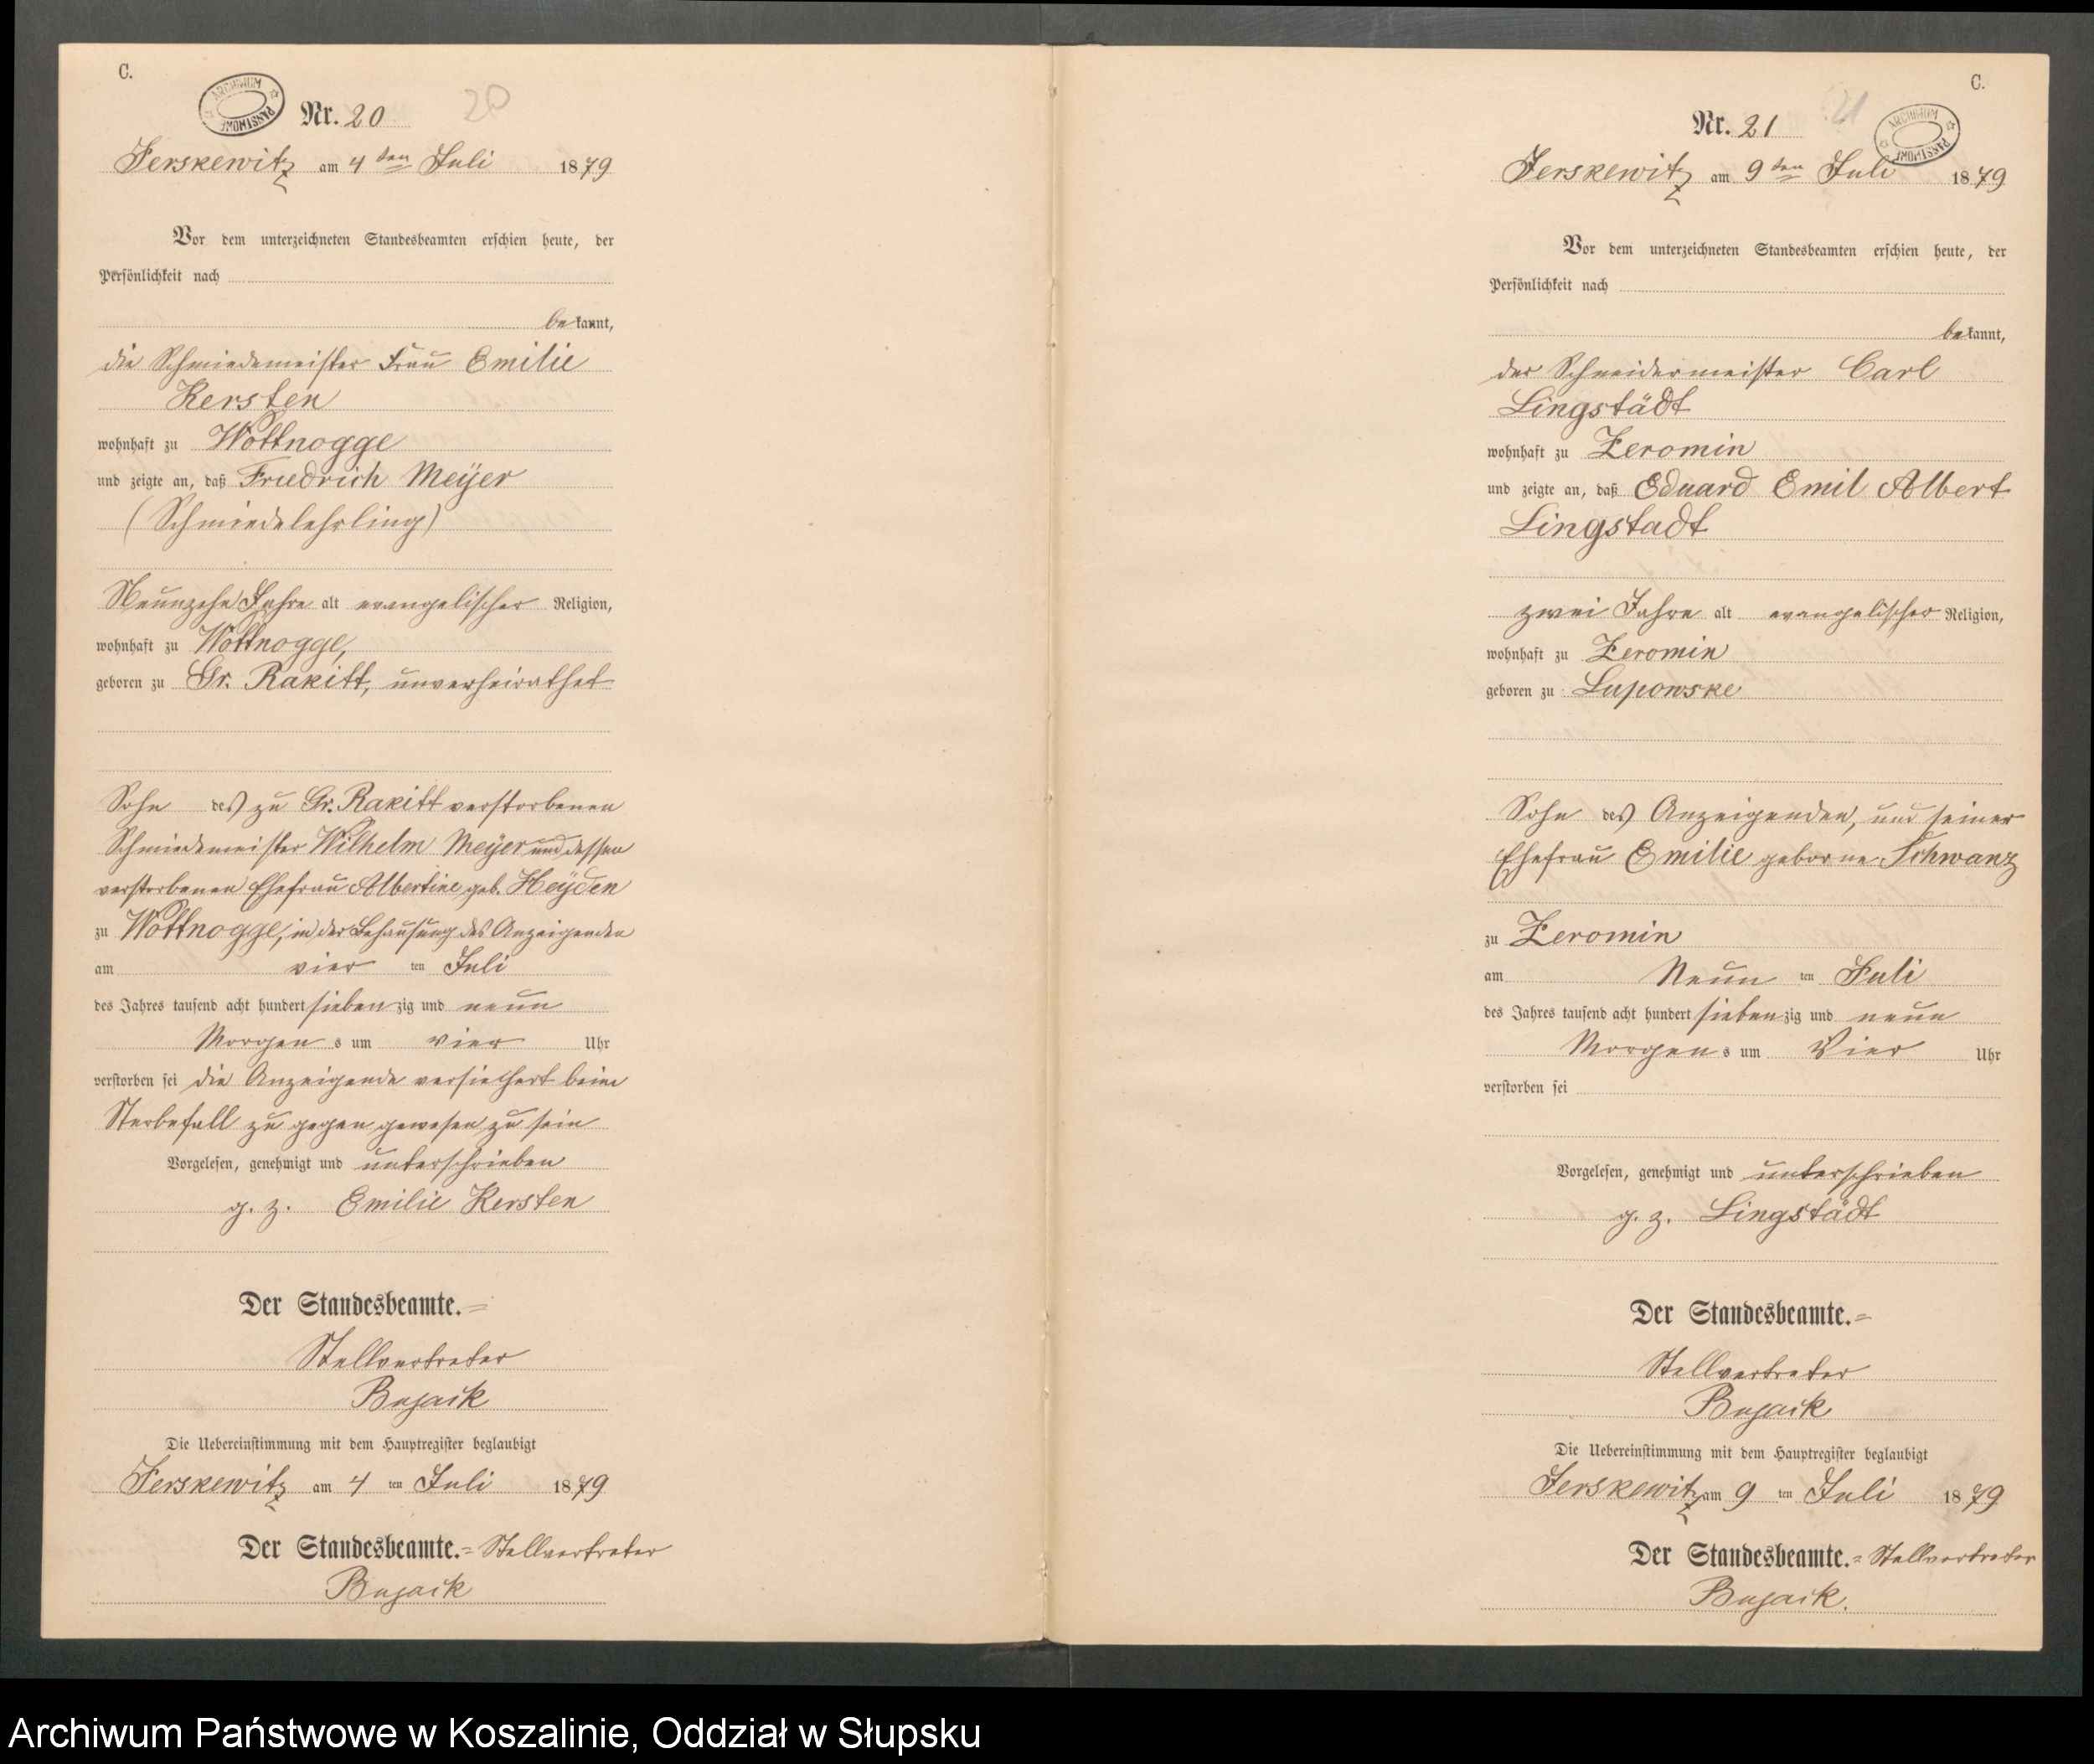 C.
ARCHIWUM PAŃSTWOWE
Nr. 20
20
Jerskewitz am 4ten Juli 1879
Vor dem unterzeichneten Standesbeamten erschien heute, der
Persönlichkeit nach
bekannt,
die Schmiedemeister Frau Emilie
Kersten
wohnhaft zu Wottnogge
und zeigte an, daß Friedrich Meÿer
(Schmiedelehrling)
Neunzehn Jahre alt evangelischer Religion,
wohnhaft zu Wottnogge,
geboren zu Gr. Rakitt, unverheirathet
Sohn des zu Gr. Rakitt verstorbenen
Schmiedemeister Wilhelm Meÿer und dessen
verstorbenen Ehefrau Albertine geb. Heÿden
zu Wottnogge, in der Behausung des Anzeigenden
am vier ten Juli
des Jahres tausend acht hundert siebenzig und neun
Morgens um vier Uhr
verstorben sei die Anzeigende versichert beim
Sterbefall zu gegen gewesen zu sein
Vorgelesen, genehmigt und unterschrieben
g. z. Emilie Kersten
Der Standesbeamte.=
Stellvertreter
Bujack
Die Uebereinstimmung mit dem Hauptregister beglaubigt
Jerskewitz am 4 ten Juli 1879
Der Standesbeamte.= Stellvertreter
Bujack
C.
Nr. 21
21
ARCHIWUM PAŃSTWOWE
Jerskewitz am 9ten Juli 1879
Vor dem unterzeichneten Standesbeamten erschien heute, der
Persönlichkeit nach
bekannt,
der Schneidermeister Carl
Lingstädt
wohnhaft zu Zeromin
und zeigte an, daß Eduard Emil Albert
Lingstadt
zwei Jahre alt evangelischer Religion,
wohnhaft zu Zeromin
geboren zu Lupowske
Sohn des Anzeigenden, und seiner
Ehefrau Emilie geborne Schwanz
zu Zeromin
am Neun ten Juli
des Jahres tausend acht hundert siebenzig und neun
Morgens um Vier Uhr
verstorben sei
Vorgelesen, genehmigt und unterschrieben
g. z. Lingstädt
Der Standesbeamte.=
Stellvertreter
Bujack
Die Uebereinstimmung mit dem Hauptregister beglaubigt
Jerskewitz am 9 ten Juli 1879
Der Standesbeamte.= Stellvertreter
Bujack.
Archiwum Państwowe w Koszalinie, Oddział w Słupsku